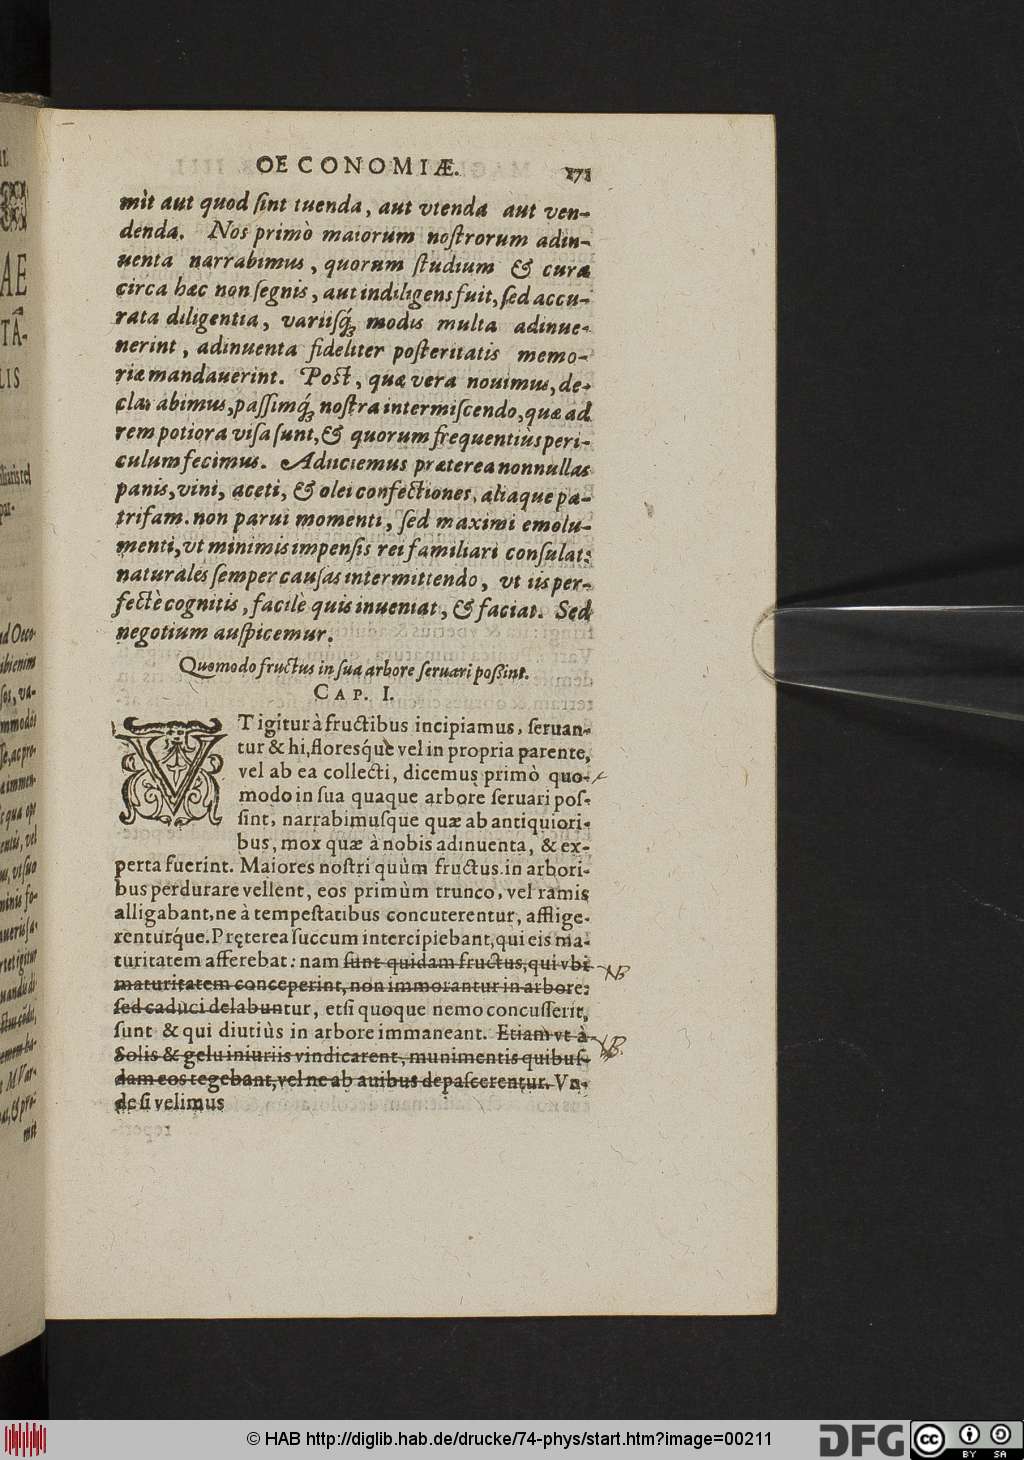 OECONOMIÆ. 171
mit aut quod ſint tuenda, aut vtenda aut ven-
denda. Nos primò maiorum noſtrorum adin-
uenta narrabimus, quorum ſtudium & cura
circa hæc non ſegnis, aut indiligens fuit, ſed accu-
rata diligentia, variiſq́; modis multa adinue-
nerint, adinuenta fideliter poſteritatis memo-
riæ mandauerint. Poſt, quæ vera nouimus, de-
clarabimus, paſſimq́; noſtra intermiſcendo, quæ ad
rem potiora viſa ſunt, & quorum frequentiùs peri-
culum fecimus. Adiiciemus præterea nonnullas
panis, vini, aceti, & olei confectiones, aliaque pa-
trifam. non parui momenti, ſed maximi emolu-
menti, vt minimis impenſis rei familiari conſulat:
naturales ſemper cauſas intermittendo, vt iis per-
fectè cognitis, facilè quis inueniat, & faciat. Sed
negotium auſpicemur.
Quomodo fructus in ſua arbore ſeruari poſsint.
CAP. I.
VT igitur à fructibus incipiamus, ſeruan-
tur & hi, floreſq́ue vel in propria parente,
vel ab ea collecti, dicemus primò quo-
modo in ſua quaque arbore ſeruari poſ-
ſint, narrabimuſque quæ ab antiquiori-
bus, mox quæ à nobis adinuenta, & ex-
perta fuerint. Maiores noſtri quùm fructus in arbori-
bus perdurare vellent, eos primùm trunco, vel ramis
alligabant, ne à tempeſtatibus concuterentur, afflige-
renturq́ue. Pręterea ſuccum intercipiebant, qui eis ma-
turitatem afferebat: nam ſunt quidam fructus, qui vbi NB
maturitatem conceperint, non immorantur in arbore:
ſed caduci delabuntur, etſi quoque nemo concuſſerit,
ſunt & qui diutiùs in arbore immaneant. Etiam vt à NB.
Solis & gelu iniuriis vindicarent, munimentis quibuſ-
dam eos tegebant, vel ne ab auibus depaſcerentur. Vn-
de ſi velimus
© HAB http://diglib.hab.de/drucke/74-phys/start.htm?image=00211
DFG
cc BY SA